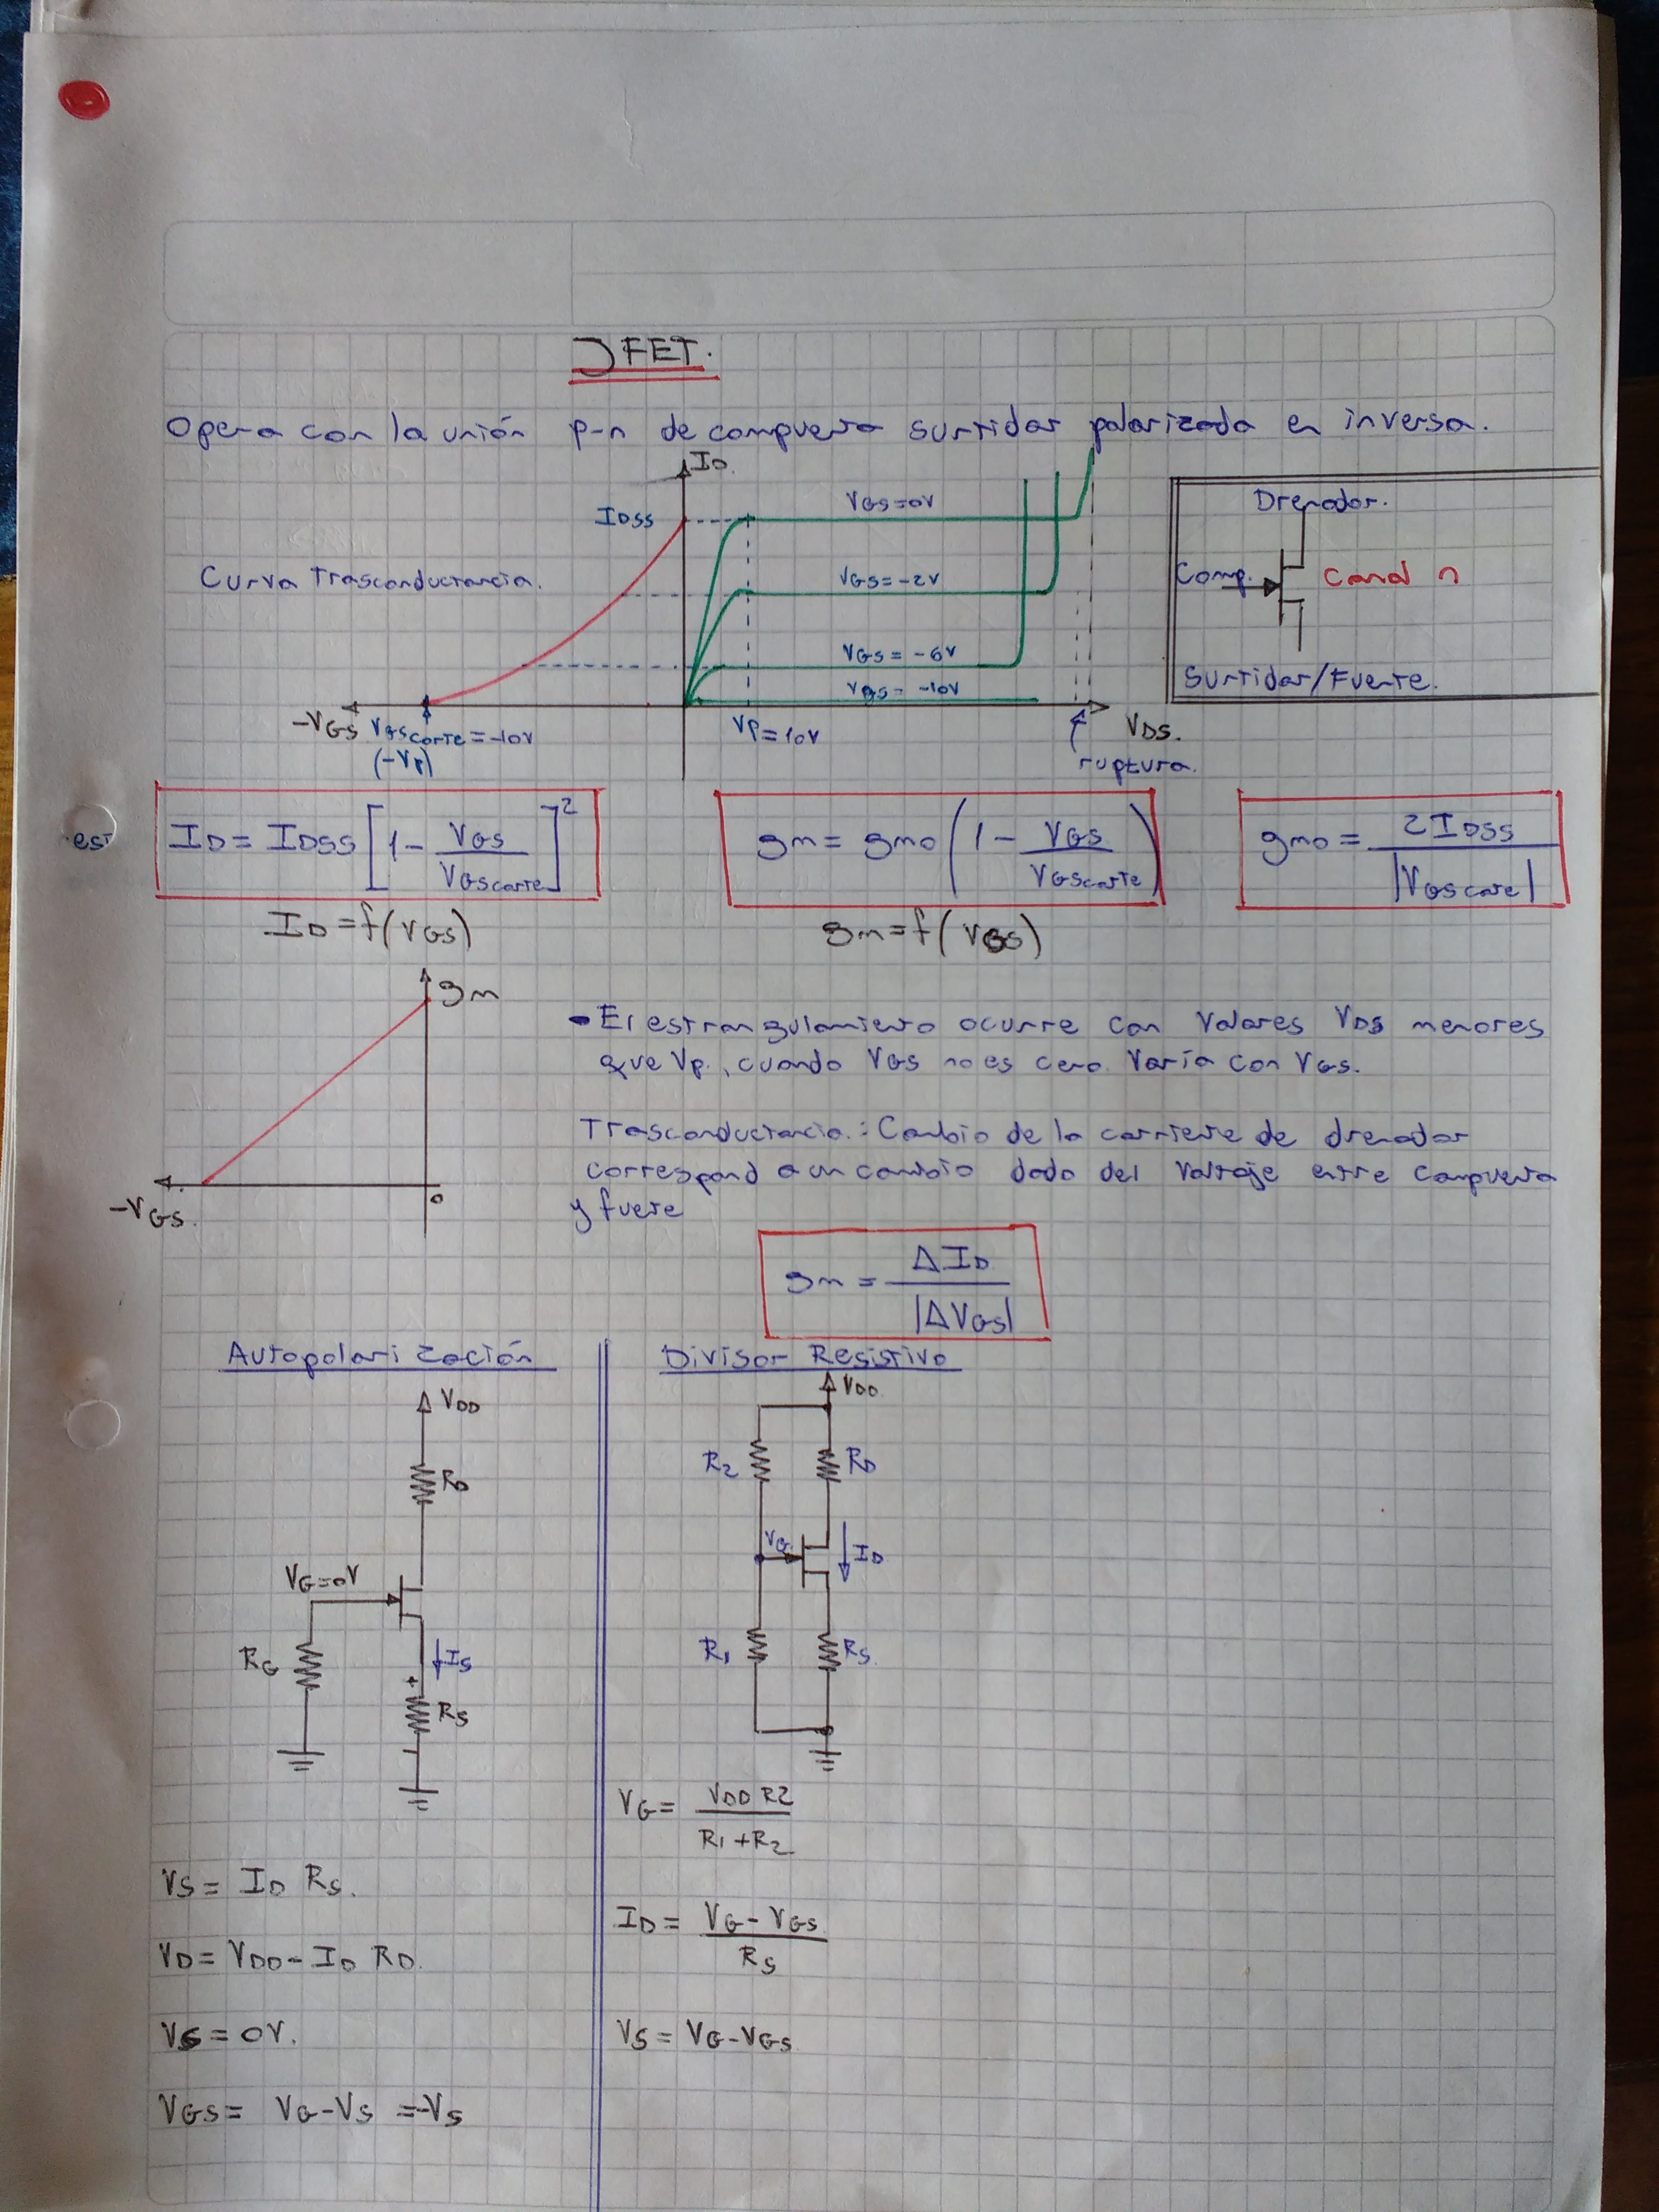 JFET.
Opera con la unión p-n de compuerta surtidor polarizada en inversa.
ID
IDSS
VGS=0V
VGS=-2V
VGS=-6V
VGS=-10V
Curva Trasconductancia.
-VGS
VGScorte=-10V
(-VP)
VP=10V
VDS.
ruptura.
Drenador.
Comp.
Canal n
Surtidor/Fuente.
est
ID = IDSS [1 - VGS/VGScorte]²
gm = gmo (1 - VGS/VGScorte)
gmo = 2IDSS/|VGScorte|
ID=f(VGS)
gm=f(VGS)
gm
-VGS.
0
- El estrangulamiento ocurre con valores VDS menores
que Vp, cuando VGS no es cero. Varía con VGS.
Trasconductancia.: Cambio de la corriente de drenador
correspond a un cambio dado del voltaje entre compuerta
y fuente
gm = ΔID/|ΔVGS|
Autopolarización
VDD
RD
VG=0V
RG
IS
+
RS
VS = ID RS.
VD = VDD - ID RD.
VG = 0V.
VGS = VG-VS =-VS
Divisor Resistivo
VDD
R2
RD
VG
ID
R1
RS
VG = VDD R2/R1+R2
ID = VG-VGS/RS
VS = VG-VGS